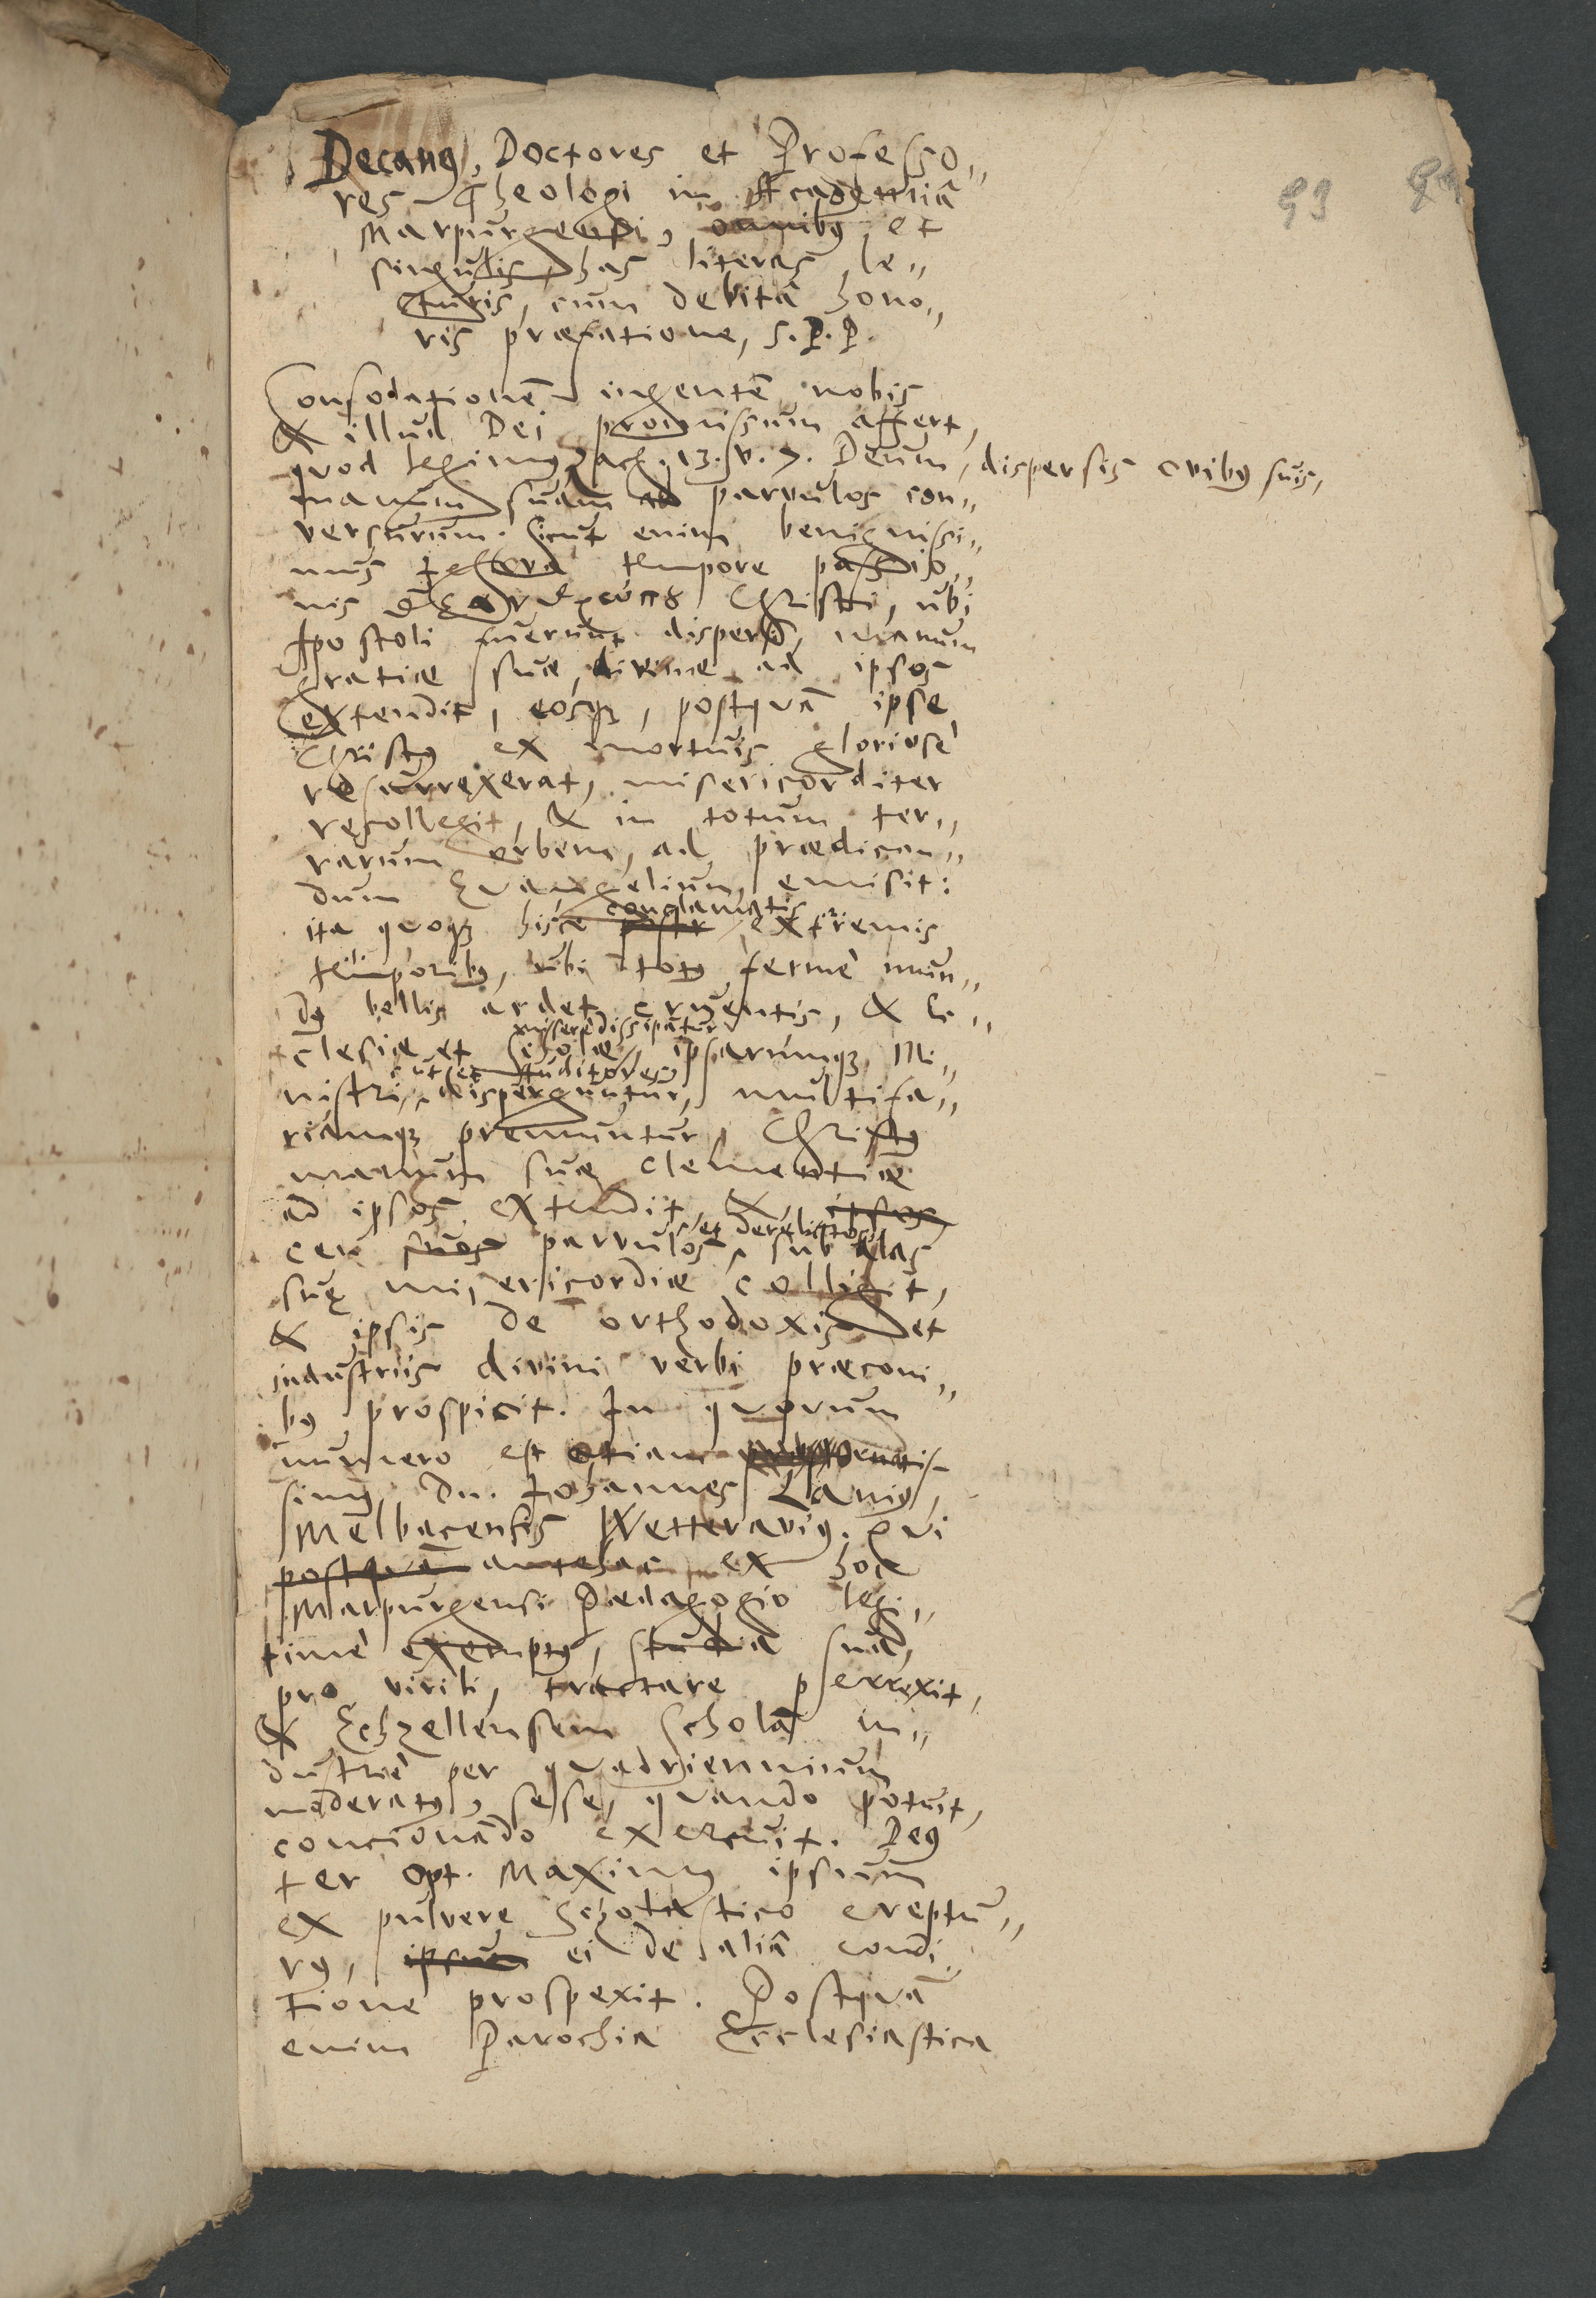 93
Decanus, Doctores et Professo„
res Theologi in Academiâ
Marpurgensi, omnibus et
singulis has literas le„
cturis, cum debitâ hono„
ris præfatione, S.P.P.
Consolationem ingentem nobis
& illud Dei promissum affert,
quod legimus Zach. 13. v. 7. Deum, dispersis ovibus suis,
manum suam ad parvulos con„
versurum. Sicut enim benignissi„
mus tempore passio„
nis Christi, ubi
Apostoli fuerunt dispersi, manum
gratiæ suæ divinæ ad ipsos
extendit, eosque, postquam ipse
Christus ex mortuis gloriosè
resurrexerat, misericorditer
recollegit, & in totum ter„
rarum orbem, ad prædican„
dum Evangelium emisit:
conclamatis
ita quoque hisce extremis
temporibus, ubi totus fermè mun„
dus bellis ardet cruentis, &
miserè dissipantur
clesiæ et Scholæ, ipsarumque Mi„
cum et auditores
nistri, disperguntur, multifa„
riamque premuntur, Christus
manum suæ clementiæ
ad ipsos extendit, & ipsos
et derelictos
ceu suos parvulos, sub alas
suæ misericordiæ colligit,
& ipsis de orthodoxis et
industriis divini verbi præconi„
bus prospicit. In quorum
numero est etiam
simus Dn. Johannes Lanius,
Melbacensis Wetteravus. Qui
postquam antehac ex hoc
Marpurgensi Pædagogio legi„
timè exemptus, studia sua,
pro virili, tractare perrexit,
& Echzellensem Scholam in„
dustriè per quadriennium
moderatus, sese, quando potuit,
concionando exercuit. Deus
ter Opt. Maximus ipsum
ex pulvere Scholastico erepturu„
rus, ipsum ei de aliâ condi„
tione prospexit. Postquam
enim Parochia Ecclesiastica